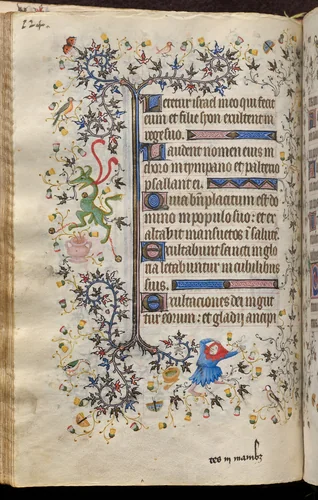 124.
Letetur israel in eo qui fecit
eum et filie syon exultent in
rege suo.
Laudent nomen eius in
choro in tympano et psalterio
psallant ei.
Quia b̅n̅placitum est do
mino in populo suo: et ex
altabit mansuetos ī salutē.
Exultabunt sancti in glo
ria letabuntur in cubilibus
suis.
Exultaciones dei in gut
ture eorum: et gladij ancipi
tes in manib3